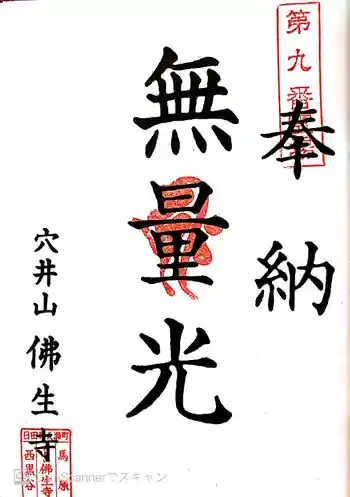 第九番
奉納
無量光
穴井山 佛生寺
馬原
佛生寺
西黒谷
Scannerでスキャン